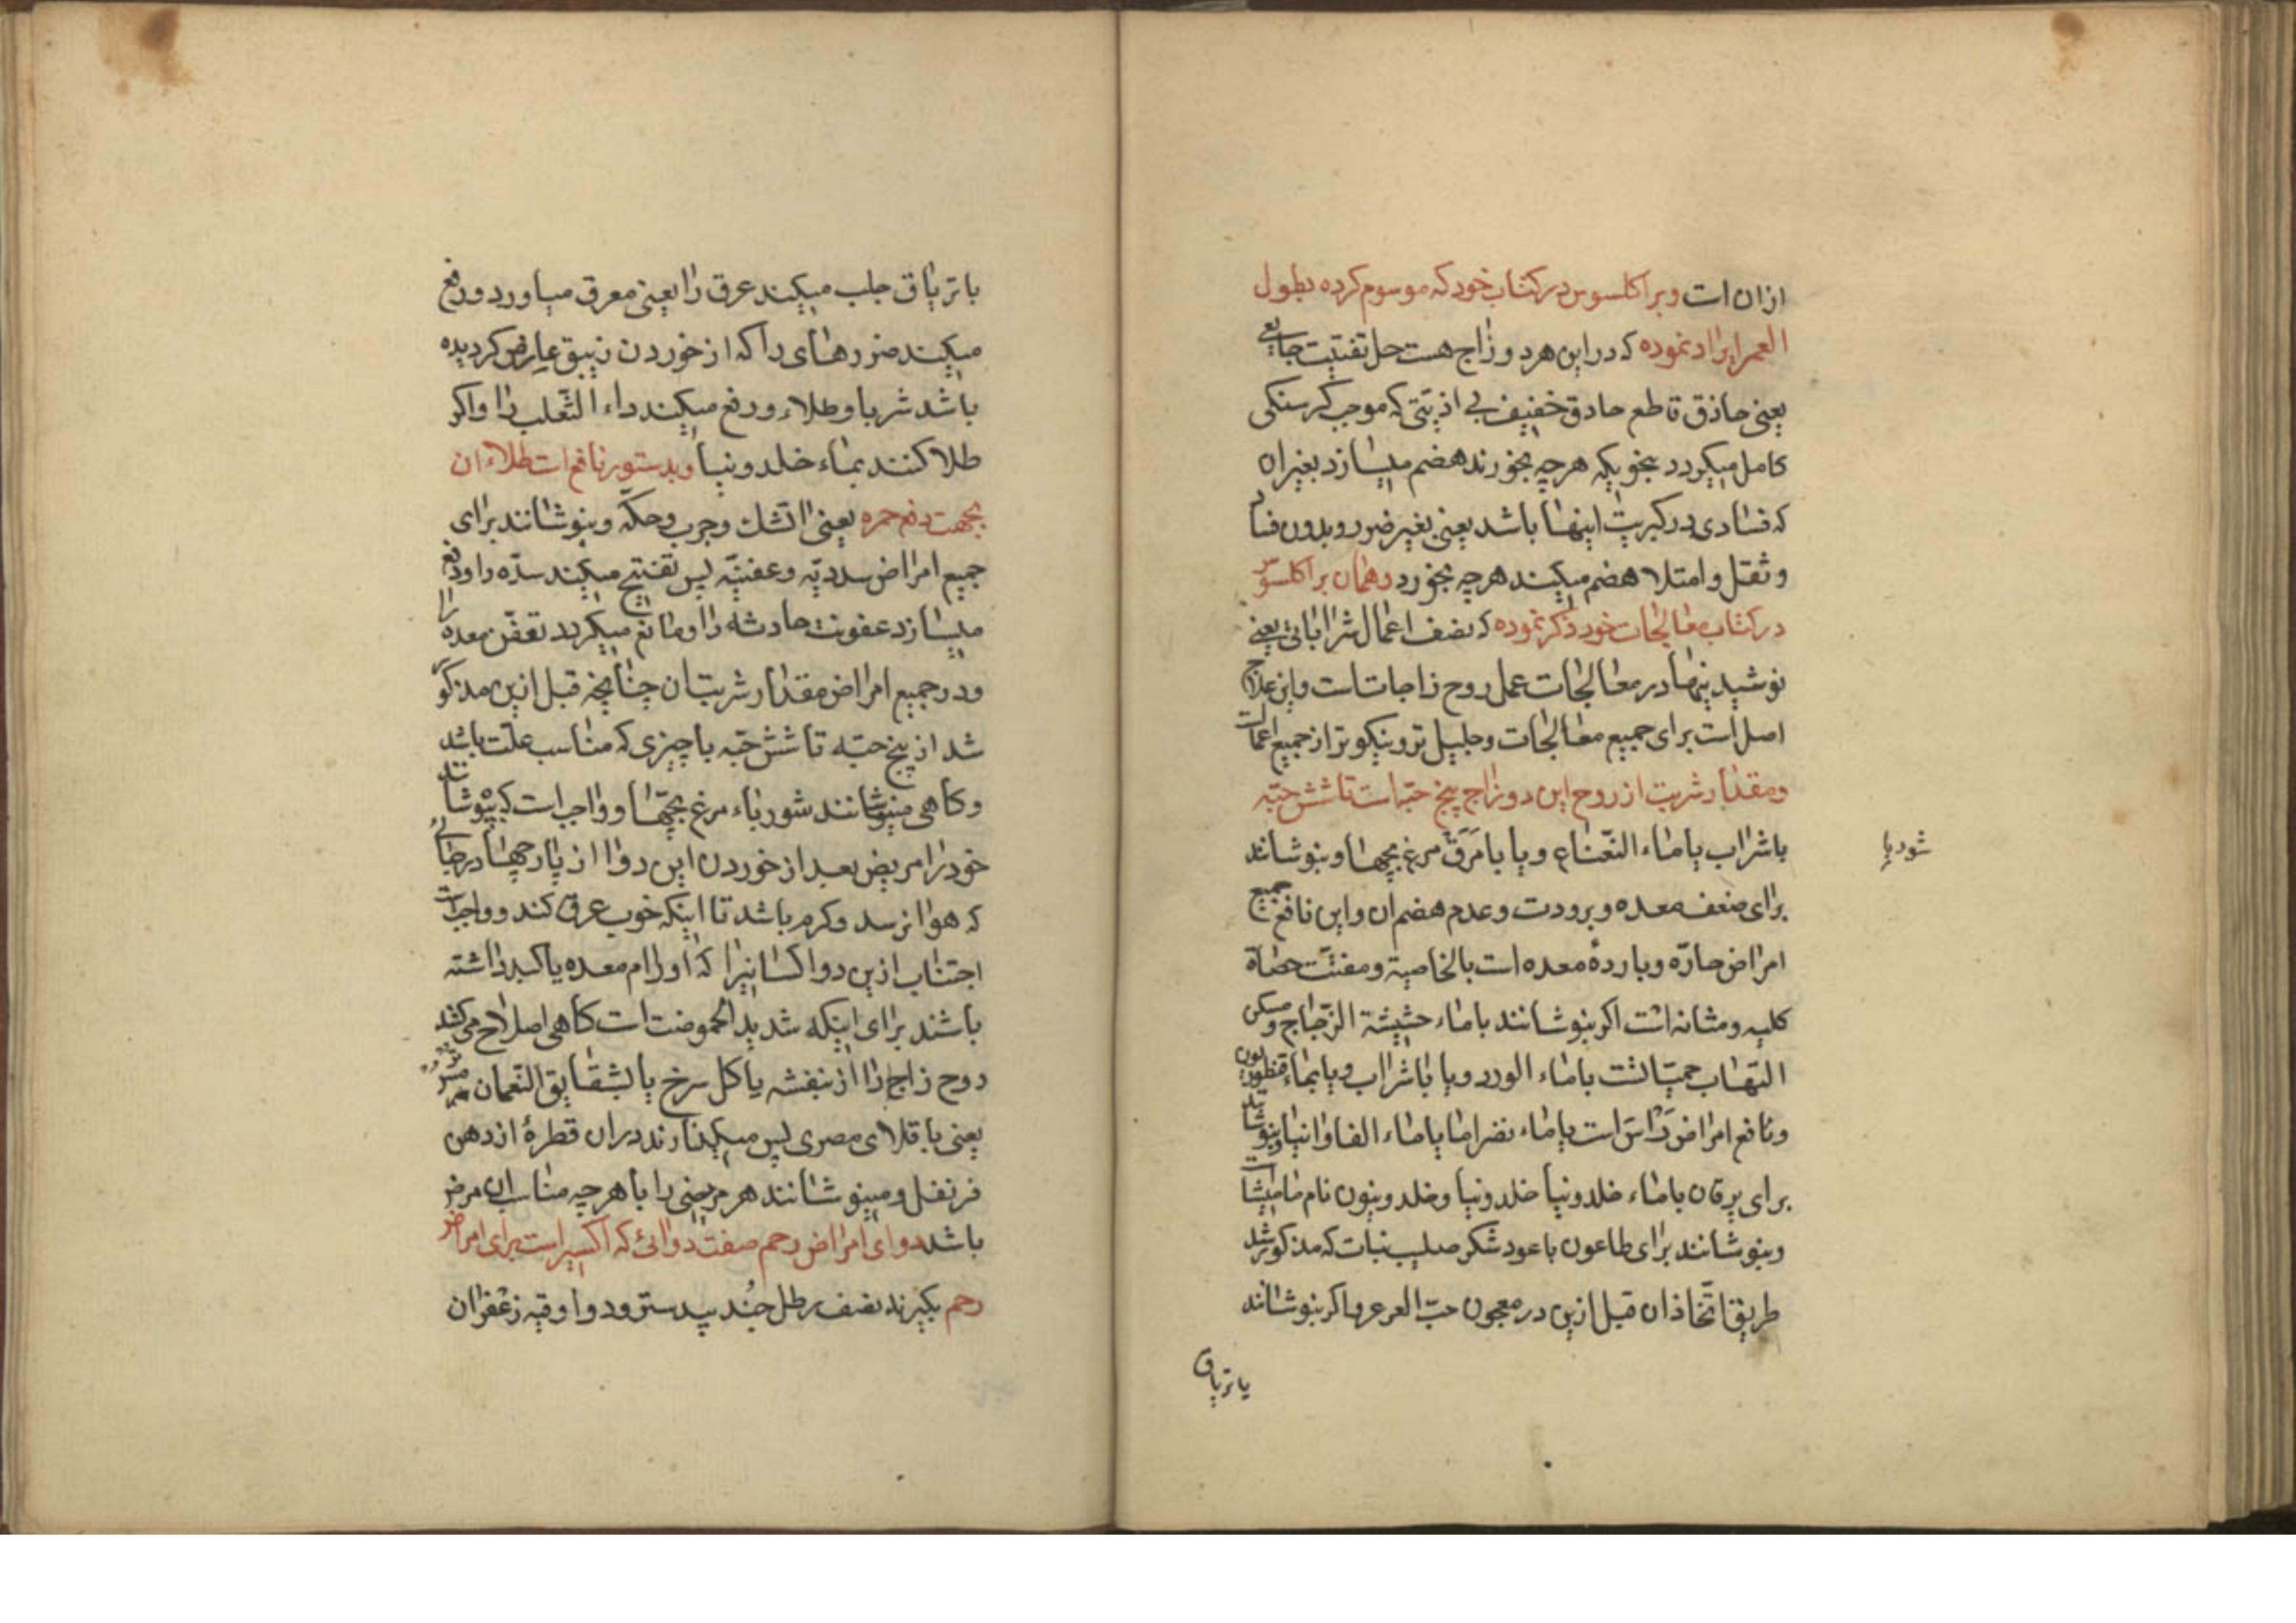 ازان است وبراکلسوس در کتاب خود که موسوم کرده بطول
العمر ایراد نموده که در این هر دو زاج هست حل تفتیت جایعی
یعنی حاذق قاطع حادق خفیف بی اذیتی که موجب کرسنکی
کامل میکردد بنحویکه هرچه بخورند هضم میسازد بغیر ان
که فسادی در کبریت اینها باشد یعنی بغیر ضرر و بدون فساد
و ثقل و امتلا هضم میکند هرچه بخورد و همان براکلسوس
در کتاب معالجات خود ذکر نموده که نصف اعمال شراباتی یعنی
نوشیدنیها در معالجات عمل روح زاجاتست و این علاج
اصل است برای جمیع معالجات و جلیل تر و نیکوتر از جمیع اعمالست
و مقدار شربت از روح این دو زاج پنج حبّه است تا شش حبّه
باشراب یا ماء النّعناع و یا با مَرَق مرغ بچها و بنوشانند
شوربا
برای ضعف معده و برودت و عدم هضم ان و این نافع جمیع
امراض حارّه و باردهٔ معده است بالخاصیة و مفتّت حصاة
کلیه و مثانه است اکر بنوشانند با ماء حشیشة الزّجاج و مسکن
التهاب حمیّاتست با ماء الورد و یا با شراب و یا بماء قنطوریون
و نافع امراض رَأس است با ماء یا ماء الفاوانیا و بنوشانند
برای یرقان با ماء خلدونیا خلدونیا و خلدونیون نام مامیثا است
و بنوشانند برای طاعون با عود شکر صلیب نبات که مذکور شد
طریق اتّخاذ ان قبل ازین در معجون حبّ العرعر و اکر بنوشانند
یا تریاق
با تریاق جلب میکند عرق را یعنی معرق میاورد و رفع
میکند ضررهای را که از خوردن زیبق عارض کردیده
باشد شربا و طلاء و رفع میکند داء الثّعلب را و اکر
طلا کنند بماء خلدونیا وبدستور نافع است طلاء ان
بجهت دفع حمره یعنی اتشک و جرب و حکّه و بنوشانند برای
جمیع امراض سددیّه و عفنیّه پس تفتیح میکند سدّه را و دفع
میسازد عفونت حادثه را و مانع میکردد تعفّن معده را
و در جمیع امراض مقدار شربت ان چنانچه قبل ازین مذکور
شد از پنج حبّه تا شش حبّه با چیزی که مناسب علّت باشد
و کاهی مینوشانند شورباء مرغ بچّها و واجب است که بپوشاند
خود را مریض بعد از خوردن این دوا از پارچها در جائی
که هوا نرسد و کرم باشد تا اینکه خوب عرق کند و واجبست
اجتناب ازین دوا کسانیرا که اورام معده یا کبد داشته
باشند برای اینکه شدید الحموضت است کاهی اصلاح می کنند
روح زاج را از بنفشه یا کل سرخ یا بشقایق النّعمان
یعنی باقلای مصری پس میکذارند دران قطرهٔ از دهن
قرنفل و مینوشانند هر مریضی را با هرچه مناسب ان مرض
باشد دوای امراض رحم صفت دوائی که اکسیر است برای امراض
رحم بکیرند نصف رطل جُندبیدستر و دو اوقیه زعفران